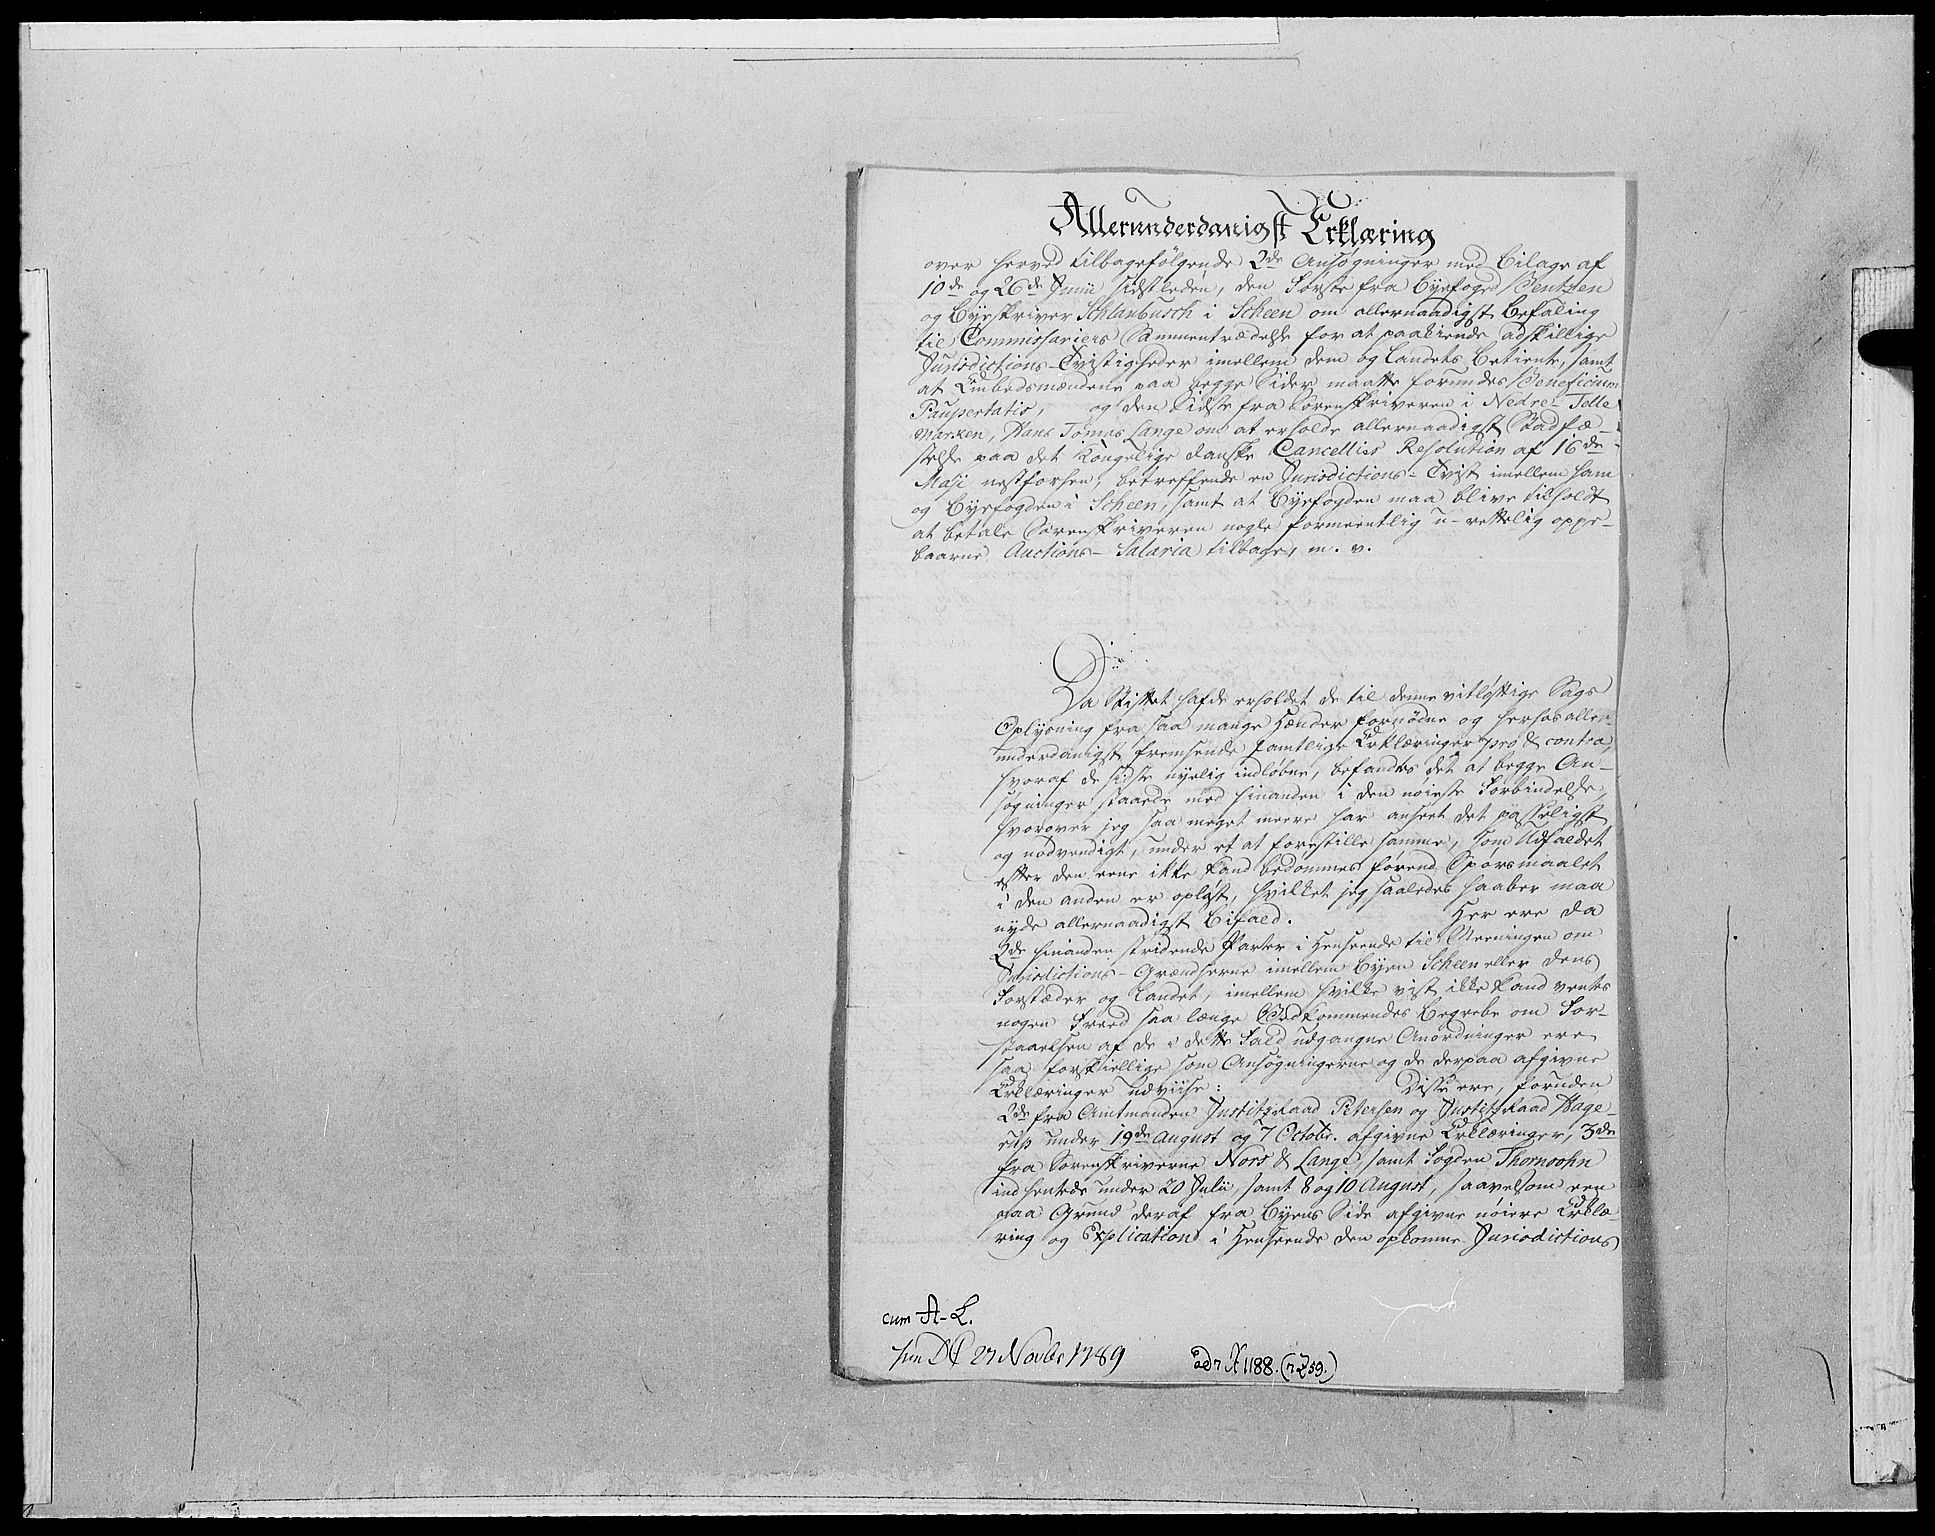 Allerunderdanigst Erklæring
over herved tilbagefølgende 2de Ansøgninger med Bilage af
10de og 26de Junii sidstleden, den Første fra Byefoged Bentzen
og Byeskriver Schlanbusch i Scheen om allernaadigst Befaling
til Commissariers Sammentrædelse for at paakiende adskillige
Jurisdictions-Tvistigheder imellem dem og Landets Betiente, samt
at Embedsmændene paa begge Sider maatte forundes Beneficium
Paupertatis, og den Sidste fra Sorenskriveren i Nedre-Telle
marken, Hans Tømas Lange om at erholde allernaadigst Stadfæ-
stelse paa det Kongelige danske Cancellies Resolution af 16de
Maji nestforhen, betreffende en Jurisdictions-Tvist imellem ham
og Byefogden i Scheen, samt at Byefogden maa blive tilholdt
at betale Sorenskriveren nogle formeentlig u-rettelig oppe-
baarne Auctions-Salaria tilbage, m. v.
Da Stiftet hafde erholdet de til denne vitløftige Sags
Oplysning fra saa mange Hænder fornødne og herhos aller-
underdanigst fremsende samtlige Erklæringer pro & contra,
hvoraf de sidste nyelig indløbne, befandtes det at begge An-
søgninger staaede med hinanden i den nøieste Forbindelse,
hvorover jeg saa meget meere har anseet det passeligst
og nødvendigt, under et at forestille samme, som Udfaldet
efter den eene ikke kand bedømmes førend Spørsmaalet
i den anden er opløst, hvilket jeg saaledes haaber maa
nyde allernaadigst Bifald. Her ere da
2de hinanden stridende Parter i Henseende til Meeningen om
Jurisdictions-Grændserne imellem Byen Scheen eller dens
Forstæder og Landet, imellem hvilke vist ikke kand ventes
nogen Freed saa længe Vedkommendes Begrebe om For-
staaelsen af de i dette Fald udgangne Anordninger ere
saa forskiellige som Ansøgningerne og de derpaa afgivne
Erklæringer udviise: Disse ere, foruden
2de fra Amtmanden Justitzraad Petersen og Justitzraad Hage-
rup under 19de August og 7 Octobr. afgivne Erklæringer, 3de
fra Sorenskriverne Nors & Lange, samt Fogden Thornsohn
indhentede under 20 Julii, samt 8 og 10 August, saavelsom een
paa Grund deraf fra Byens Side afgivne nøiere Erklæ-
ring og Explication i Henseende den opkomne Jurisdictions
cum A-L.
27 Novbr 1789
N 1188.